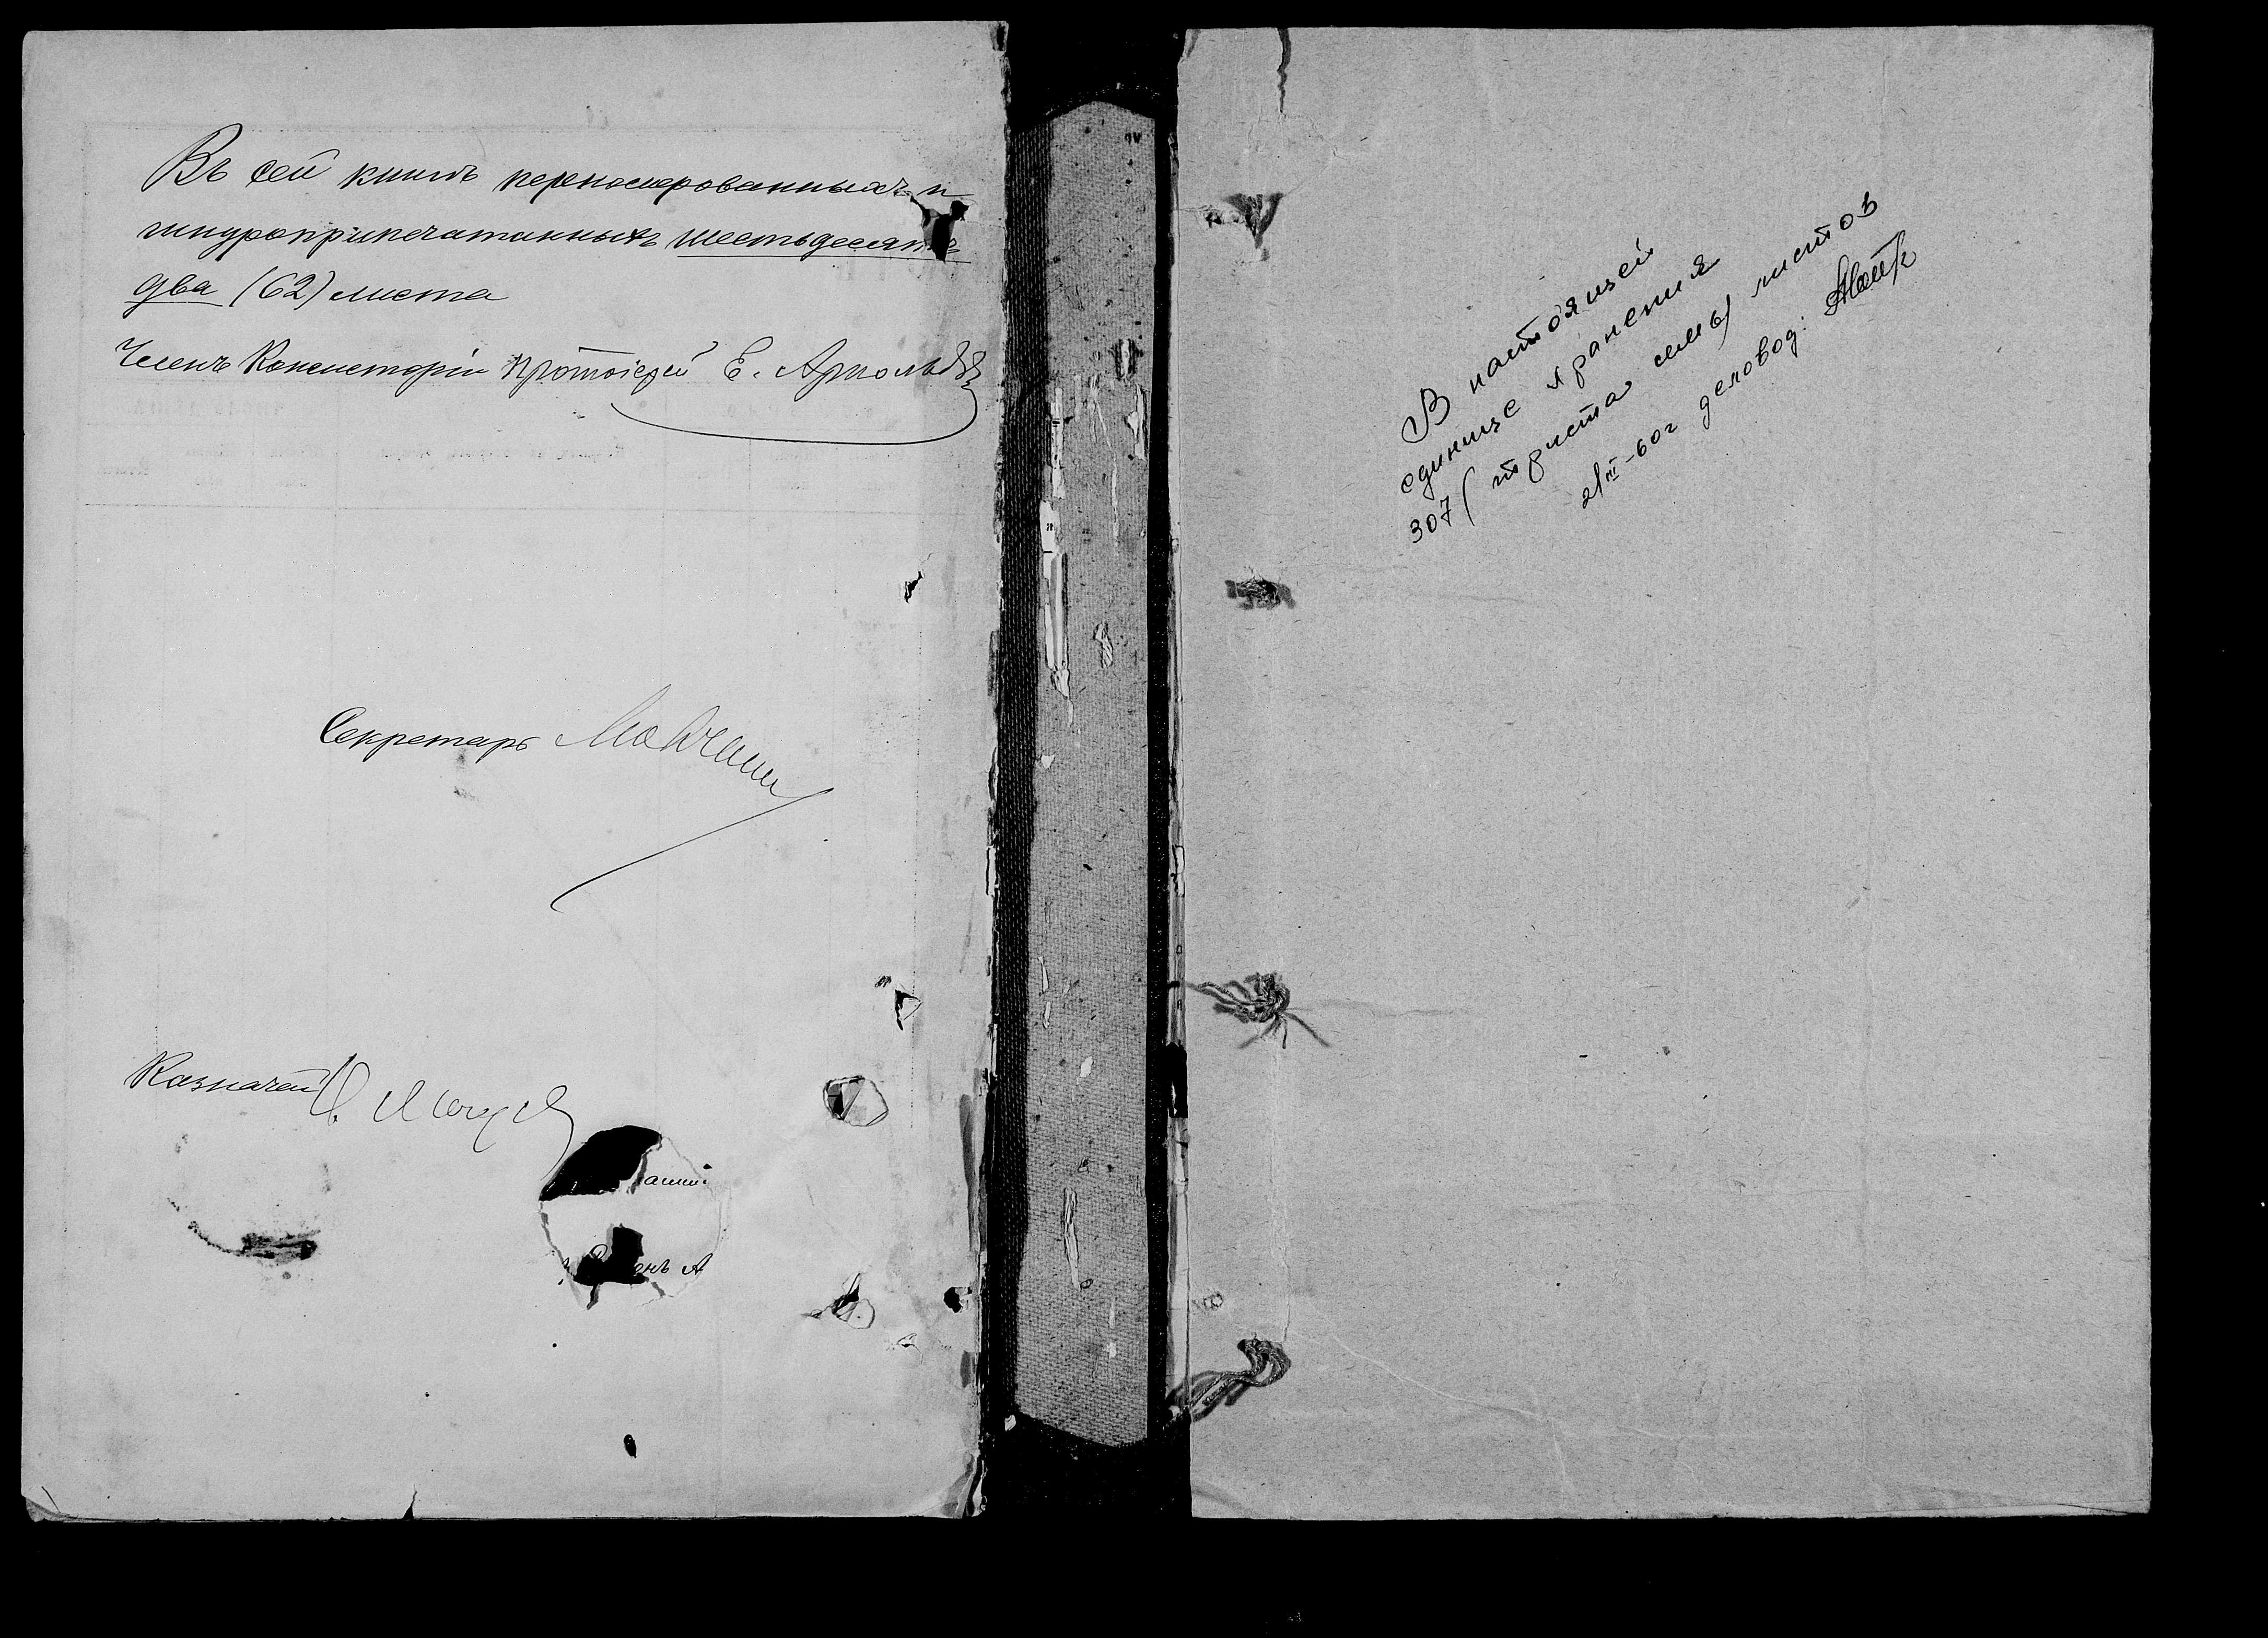 Въ сей книгѣ перенумерованныхъ и
шнуроприпечатанныхъ шестьдесятъ
два (62) листа
Членъ Консисторіи Протоіерей Е. Арнольдъ
Секретарь
Казначей
В настоящей
единице хранения
307 (триста семь) листов
21/III-60г деловод: